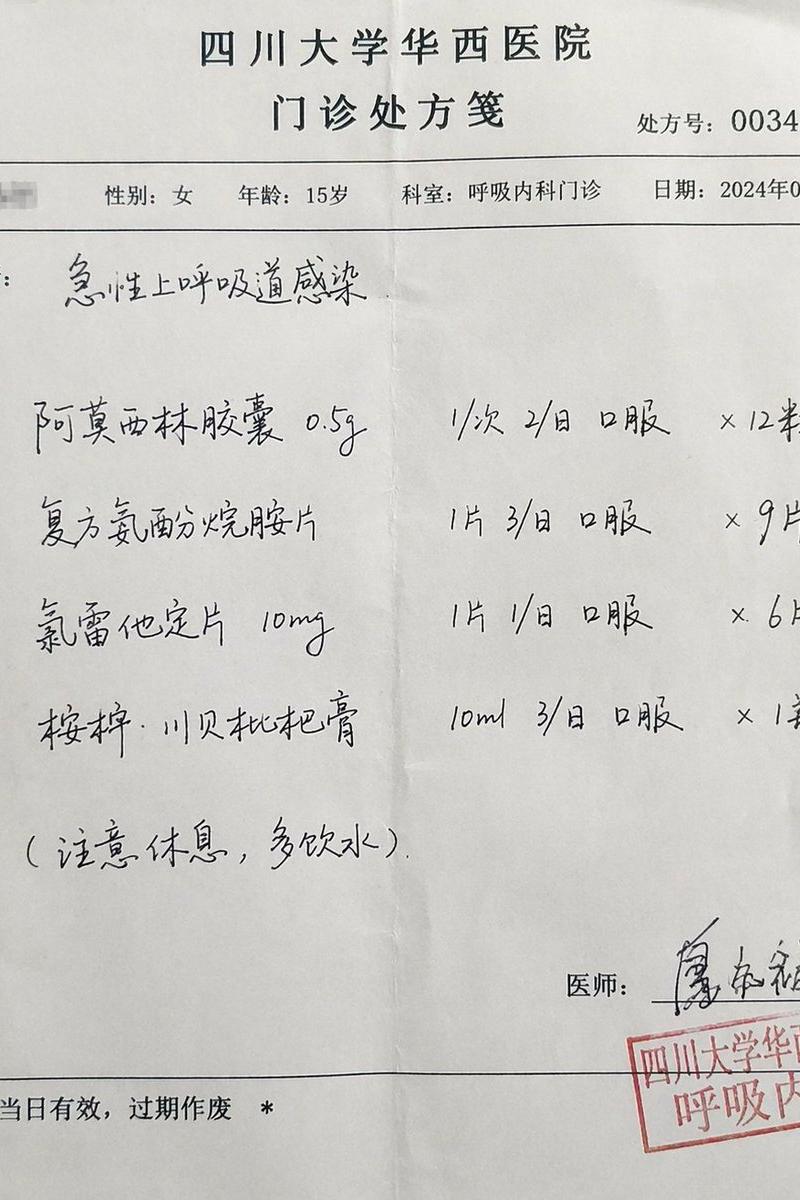 四川大学华西医院
门诊处方笺
处方号：0034
性别：女 年龄：15岁 科室：呼吸内科门诊 日期：2024年0
急性上呼吸道感染
阿莫西林胶囊 0.5g 1/次 2/日 口服 ×12粒
复方氨酚烷胺片 1片 3/日 口服 ×9片
氯雷他定片 10mg 1片 1/日 口服 ×6片
川贝枇杷膏 10ml 3/日 口服 ×1
（注意休息，多饮水）.
医师：
四川大学华西
呼吸内
当日有效，过期作废 *